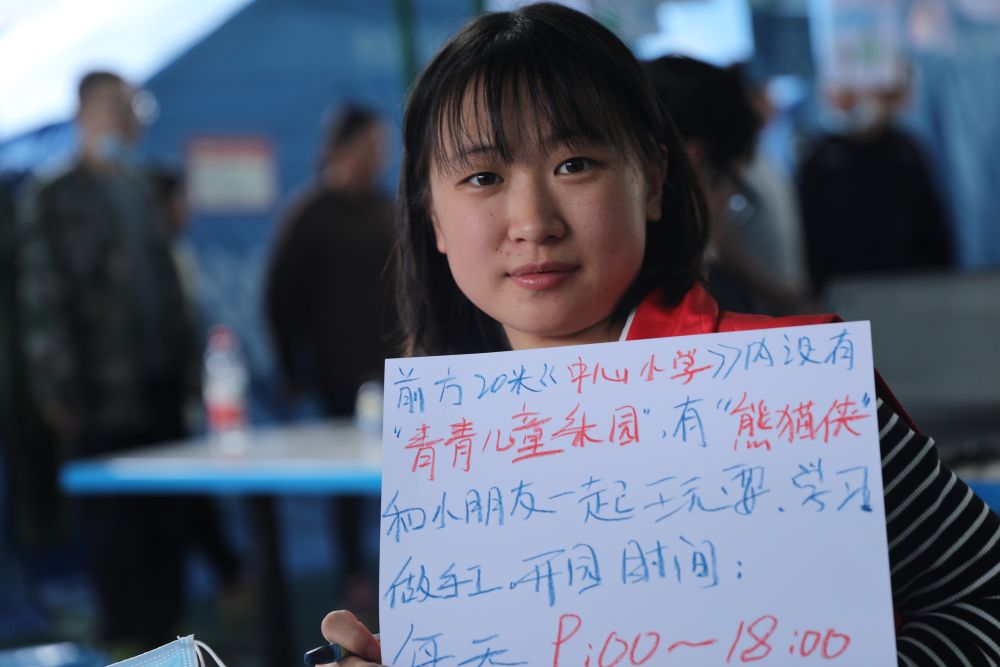 前方20米《中心小学》内设有
"青青儿童乐园",有"熊猫侠"
和小朋友一起玩耍、学习
做手工。开园时间:
每天 9:00～18:00